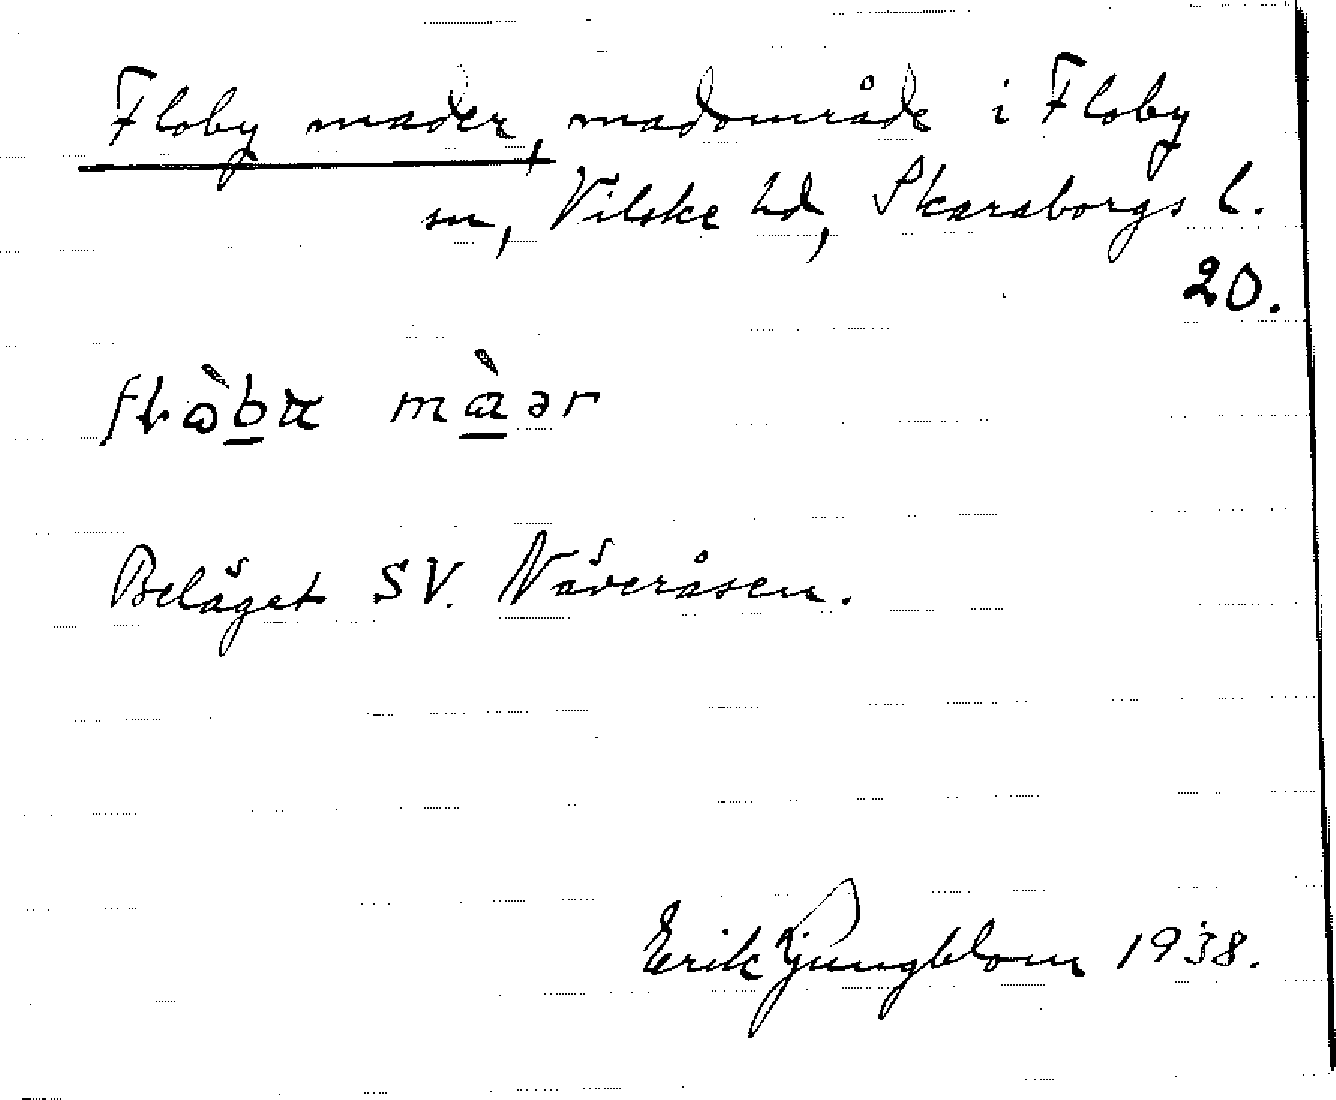 Floby mader, madområde i Floby
sn, Vilske hd, Skaraborgs l.
20.
màər
Beläget SV. Näveråsen.
Erik Ljungblom 1938.